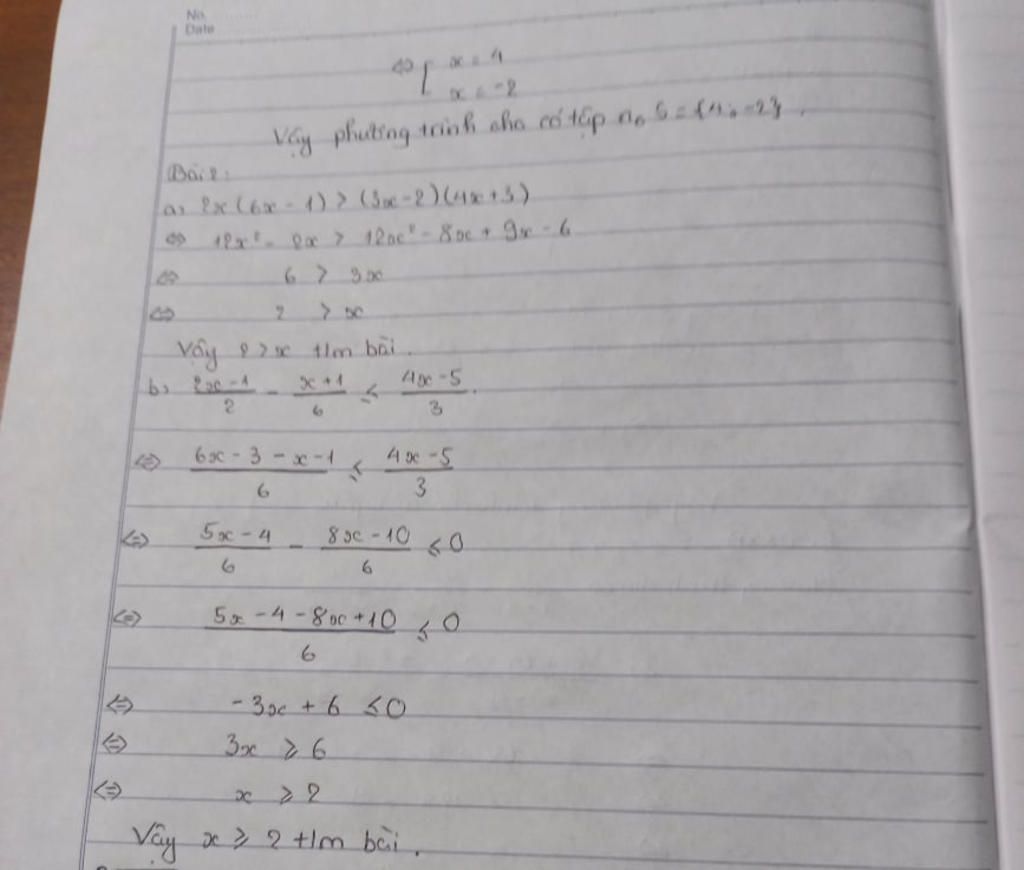 No.
Date
⇔ [ x = 4
x = -2
Vậy phương trình cho có tập n₀ S = {4; -2}.
Bài 2:
a, 2x(6x - 1) > (3x - 2)(4x + 3)
⇔ 12x² - 2x > 12x² - 8x + 9x - 6
⇔ 6 > 3x
⇔ 2 > x
Vậy 2 > x t/m bài.
b, \frac{2x-1}{2} - \frac{x+1}{6} ≤ \frac{4x-5}{3}.
⇔ \frac{6x-3-x-1}{6} ≤ \frac{4x-5}{3}
⇔ \frac{5x-4}{6} - \frac{8x-10}{6} ≤ 0
⇔ \frac{5x-4-8x+10}{6} ≤ 0
⇔ -3x + 6 ≤ 0
⇔ 3x ≥ 6
⇔ x ≥ 2
Vậy x ≥ 2 t/m bài.